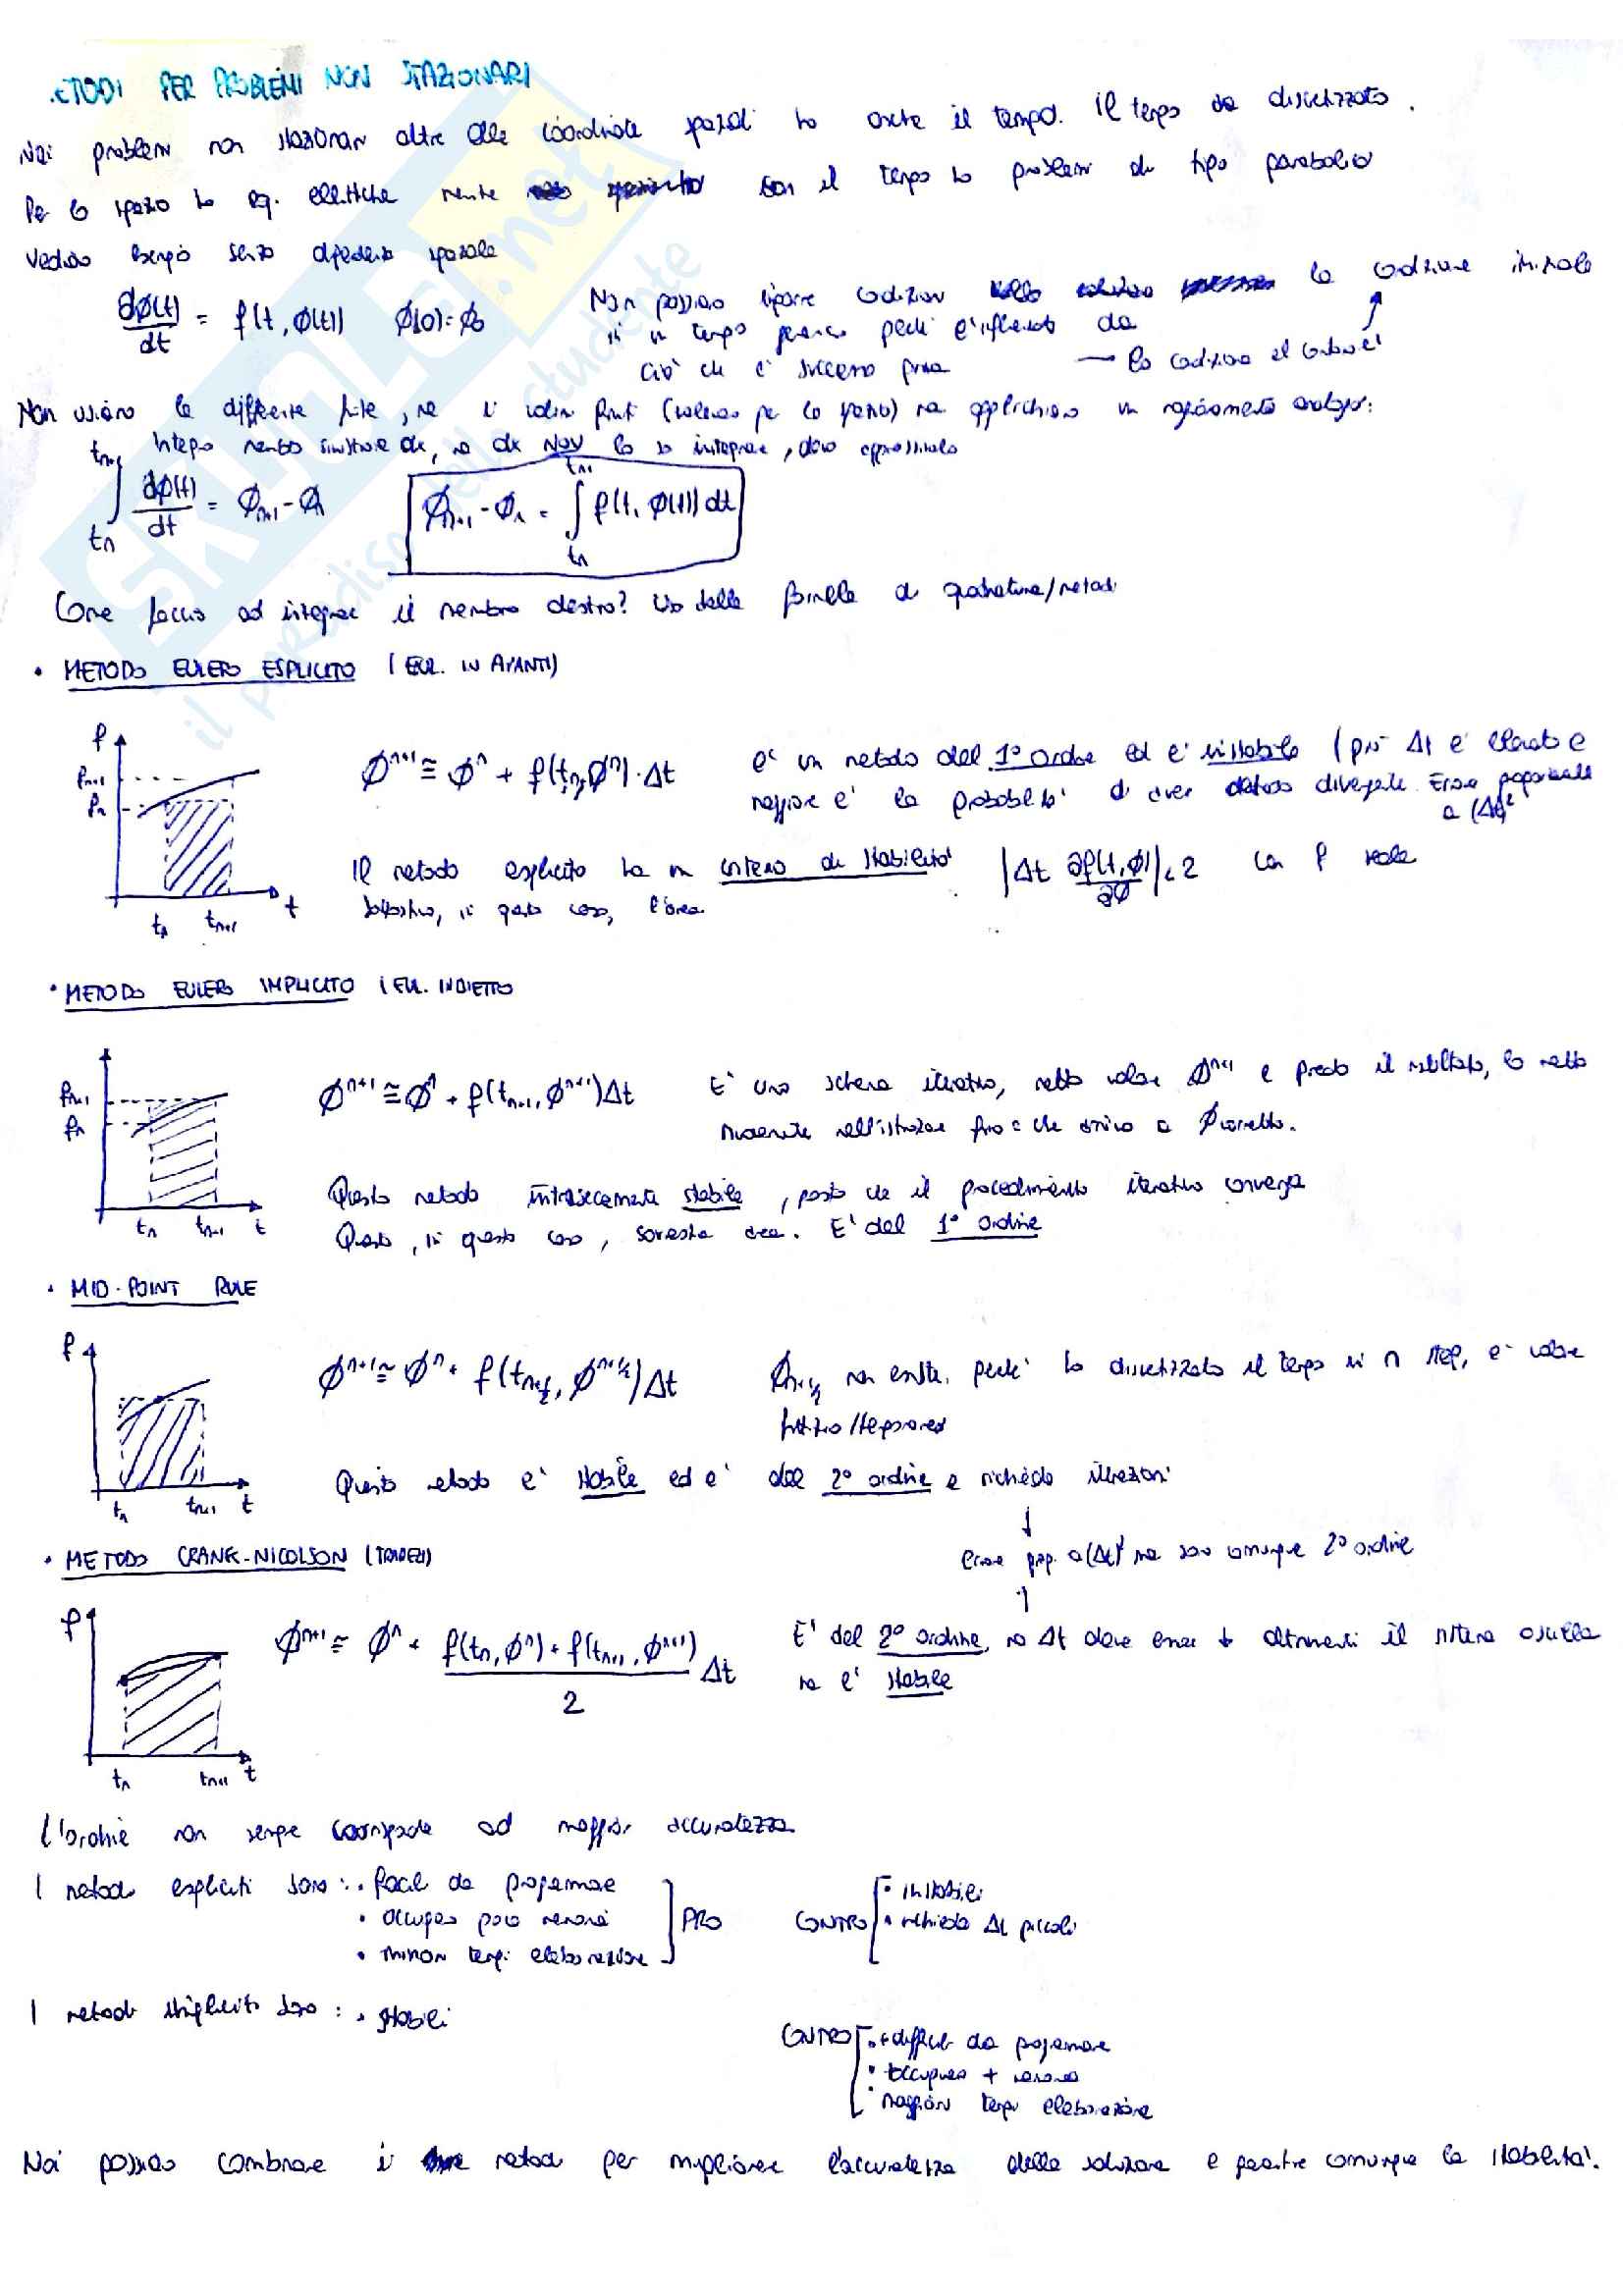 METODI PER PROBLEMI NON STAZIONARI
Nei problemi non stazionari oltre alle coordinate spaziali ho anche il tempo. Il tempo va discretizzato.
Per lo spazio ho eq. ellittiche mentre con il tempo ho problemi di tipo parabolico
Vediamo esempio senza dipendenza spaziale
dφ(t)/dt = f(t, φ(t))    φ(0) = φ0
Non possiamo imporre condizioni la condizione iniziale
in un tempo perché è influenzato da
ciò che è successo prima
→ la condizione al contorno è
Non usiamo le differenze finite, né i volumi finiti (valevano per lo spazio) ma applichiamo un ragionamento analogo:
Integro membro sinistro e dx, ma dx NON lo so integrare, devo approssimarlo
∫ tn tn+1 dφ(t)/dt = φn+1 - φn
φn+1 - φn = ∫ tn tn+1 f(t, φ(t)) dt
Come faccio ad integrare il membro destro? Uso delle formule di quadratura/metodi
• METODO EULERO ESPLICITO (EUL. IN AVANTI)
f
fn+1
fn
tn tn+1 t
φ^n+1 ≅ φ^n + f(tn, φ^n)·Δt
è un metodo del 1° ordine ed è instabile (più Δt è elevato e
maggiore è la probabilità di avere divergente. Errore proporzionale
a (Δt)²
Il metodo esplicito ha un criterio di stabilità |Δt ∂f(t,φ)/∂φ| < 2 con f reale
Sottostima, in questo caso, l'area
• METODO EULERO IMPLICITO (EUL. INDIETRO
fn+1
fn
tn tn+1 t
φ^n+1 ≅ φ^n + f(tn+1, φ^n+1)Δt
È uno schema iterativo, metto valore φ^n+1 e prendo il risultato, lo metto
nuovamente nell'istruzione fino a che arrivo a φ corretto.
Questo metodo intrinsecamente stabile, posto che il procedimento iterativo converga
Questo, in questo caso, sovrastima area. È del 1° ordine
• MID-POINT RULE
f
tn tn+1 t
φ^n+1 ≅ φ^n + f(tn+½, φ^n+½)Δt
φn+½ non esiste, perché ho discretizzato il tempo in n step, è valore
fittizio/temporaneo
Questo metodo è stabile ed è del 2° ordine e richiede iterazioni
↓
errore prop. a (Δt) ma sono comunque 2° ordine
↑
• METODO CRANK-NICOLSON (TRAPEZI)
f
tn tn+1 t
φ^n+1 ≅ φ^n + f(tn, φ^n) + f(tn+1, φ^n+1) / 2 Δt
È del 2° ordine, ma Δt deve essere ↓ altrimenti il sistema oscilla
ma è stabile
L'ordine non sempre corrisponde ad maggior accuratezza
I metodi espliciti sono: • facili da programmare
• occupano poca memoria
• minori tempi elaborazione
PRO
CONTRO
• instabili
• richiede Δt piccoli
I metodi impliciti sono: • stabili
CONTRO
• + difficili da programmare
• occupano + memoria
• maggiori tempi elaborazione
Noi possiamo combinare i metodi per migliorare l'accuratezza della soluzione e garantire comunque la stabilità.